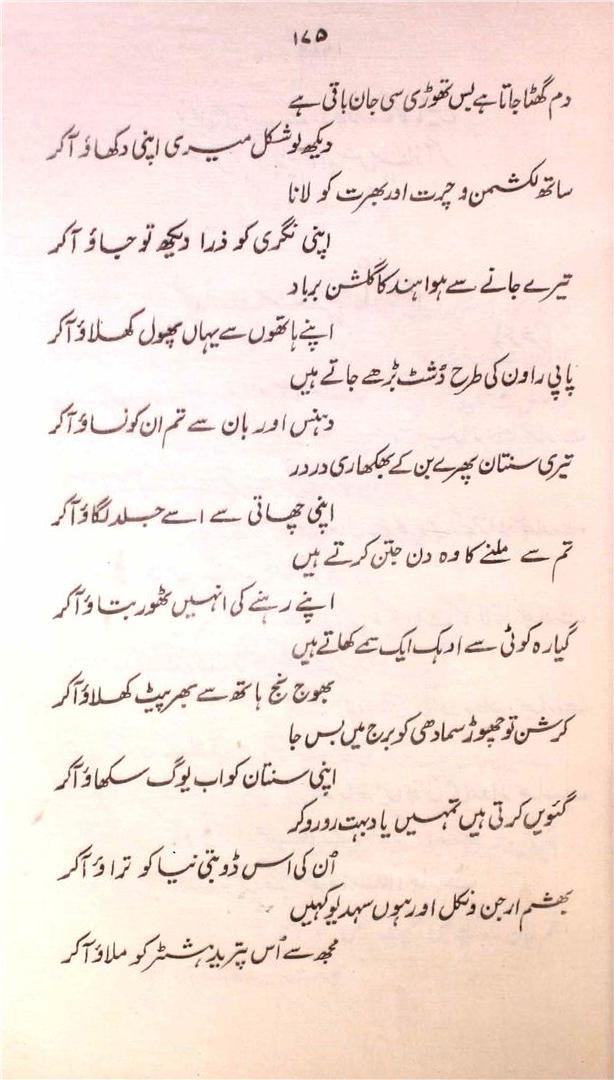 ۱۷۵
دم گھٹا جاتا ہے بس تھوڑی سی جان باقی ہے
دیکھ لو شکل میری اپنی دکھاؤ آکر
ساتھ لکشمن و چرت اور بھرت کو لانا
اپنی نگری کو ذرا دیکھ تو جاؤ آکر
تیرے جانے سے ہوا ہند کا گلشن برباد
اپنے ہاتھوں سے یہاں پھول کھلاؤ آکر
پاپی راون کی طرح دُشٹ بڑھے جاتے ہیں
دہنس اور بان سے تم ان کو نساؤ آکر
تیری سنتان پھرے بن کے بھکھاری در در
اپنی چھاتی سے اسے جلد لگاؤ آکر
تم سے ملنے کا وہ دن جتن کرتے ہیں
اپنے رہنے کی انہیں ٹھور بتاؤ آکر
گیارہ کوٹی سے ادہک ایک سمے کھاتے ہیں
بھوج نج ہاتھ سے بھر پیٹ کھلاؤ آکر
کرشن تو چھوڑ سمادھی کو برج میں بس جا
اپنی سنتان کو اب یوگ سکھاؤ آکر
گئویں کرتی ہیں تمہیں یاد بہت رو رو کر
اُن کی اس ڈوبتی نیا کو تراؤ آکر
بھشم ارجن و نکل اور ہوں سہدیو کہیں
مجھ سے اُس پتر یدہشٹر کو ملاؤ آکر